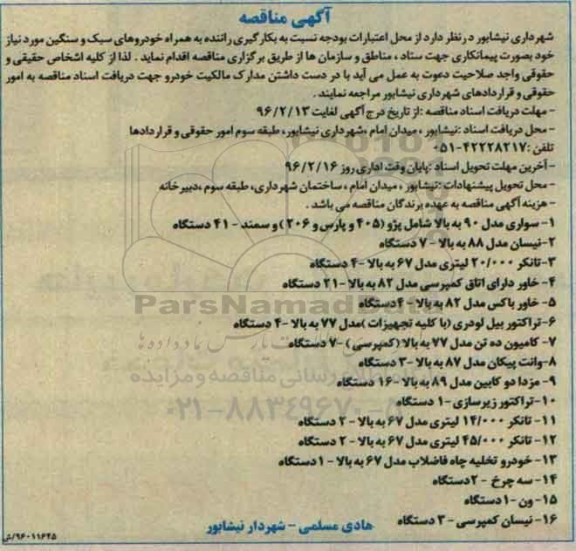 آگهی مناقصه
شهرداری نیشابور در نظر دارد از محل اعتبارات بودجه نسبت به بکار گیری راننده به همراه خودروهای سبک و سنگین مورد نیاز
خود بصورت پیمانکاری جهت ستاد ، مناطق و سازمان ها از طریق برگزاری مناقصه اقدام نماید . لذا از کلیه اشخاص حقیقی و
حقوقی واجد صلاحیت دعوت به عمل می آید با در دست داشتن مدارک مالکیت خودرو جهت دریافت اسناد مناقصه به امور
حقوقی و قراردادهای شهرداری نیشابور مراجعه نمایند .
- مهلت دریافت اسناد مناقصه :از تاریخ درج آگهی لغایت ۹۶/۲/۱۳
- محل دریافت اسناد :نیشابور ، میدان امام ،شهرداری نیشابور، طبقه سوم امور حقوقی و قراردادها
تلفن :۴۲۲۲۸۲۱۷-۰۵۱
- آخرین مهلت تحویل اسناد :پایان وقت اداری روز ۹۶/۲/۱۶
- محل تحویل پیشنهادات :نیشابور ، میدان امام ، ساختمان شهرداری، طبقه سوم ،دبیرخانه
- هزینه آگهی مناقصه به عهده برندگان مناقصه می باشد .
۱- سواری مدل ۹۰ به بالا شامل پژو (۴۰۵ و پارس و ۲۰۶ ) و سمند - ۴۱ دستگاه
۲-نیسان مدل ۸۸ به بالا - ۷ دستگاه
۳-تانکر ۲۰/۰۰۰ لیتری مدل ۶۷ به بالا -۴ دستگاه
۴- خاور دارای اتاق کمپرسی مدل ۸۲ به بالا -۲۱ دستگاه
۵- خاور باکس مدل ۸۲ به بالا - ۴ دستگاه
ParsNamadData
۶-تراکتور بیل لودری (با کلیه تجهیزات )مدل ۷۷ به بالا -۴ دستگاه
۷- کامیون ده تن مدل ۷۷ به بالا (کمپرسی ) -۷ دستگاه
۸-وانت پیکان مدل ۸۷ به بالا -۳ دستگاه
۹- مزدا دو کابین مدل ۸۹ به بالا -۱۶ دستگاه
۱۰-تراکتور زیرسازی -۱ دستگاه
۰۲۱-۸۸۳۴۹۶۷۰-۵
۱۱- تانکر ۱۴/۰۰۰ لیتری مدل ۶۷ به بالا - ۲ دستگاه
۱۲- تانکر ۴۵/۰۰۰ لیتری مدل ۶۷ به بالا - ۲ دستگاه
۱۳- خودرو تخلیه چاه فاضلاب مدل ۶۷ به بالا - ۱ دستگاه
۱۴- سه چرخ - ۲ دستگاه
۱۵- ون -۱ دستگاه
۱۶- نیسان کمپرسی - ۳ دستگاه
هادی مسلمی - شهردار نیشابور
۹۶۰۱۱۶۴۵/ش